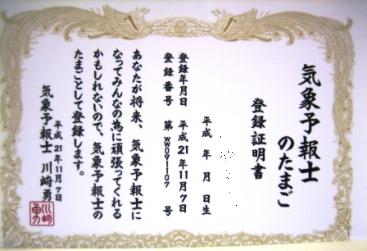 気象予報士
のたまご
登録証明書
平成 年 月 日生
登録年月日 平成21年11月7日
登録番号 第ww091107 号
あなたが将来、気象予報士に
なってみんなの為に頑張ってくれる
かもしれないので、気象予報士の
たまごとして登録します。
平成21年11月7日
気象予報士 川﨑勇